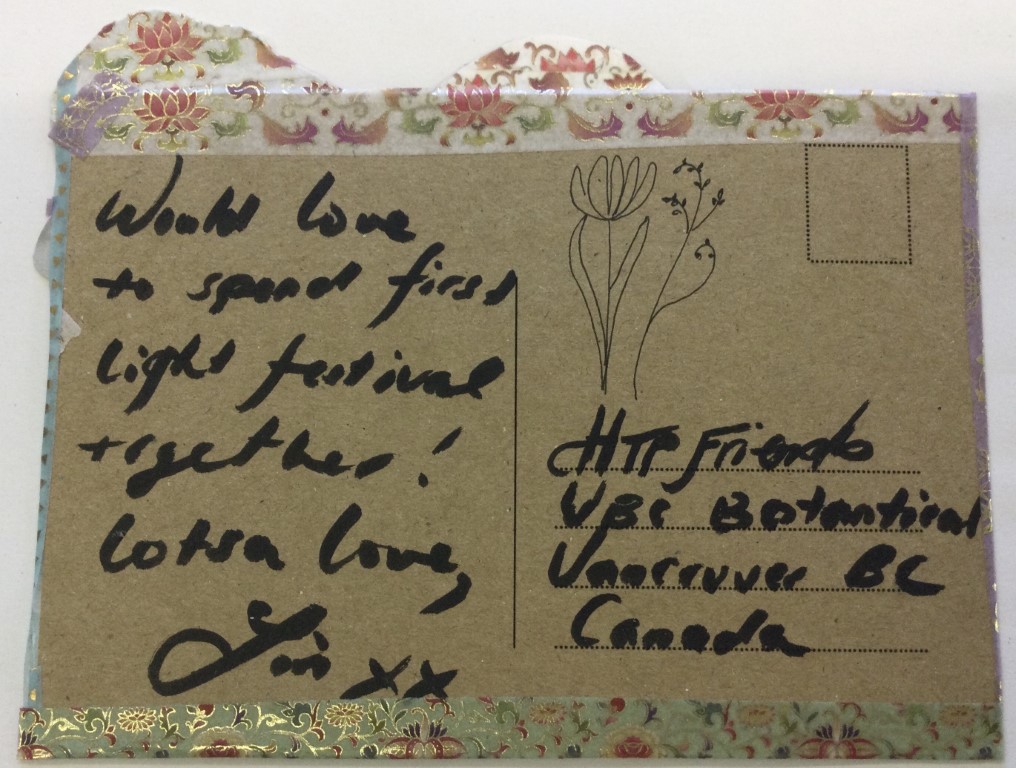 Would love
to spend first
light festival
together!
Lotsa love,
Lin xx
HTP Friends
UBC Botantical
Vancouver BC
Canada